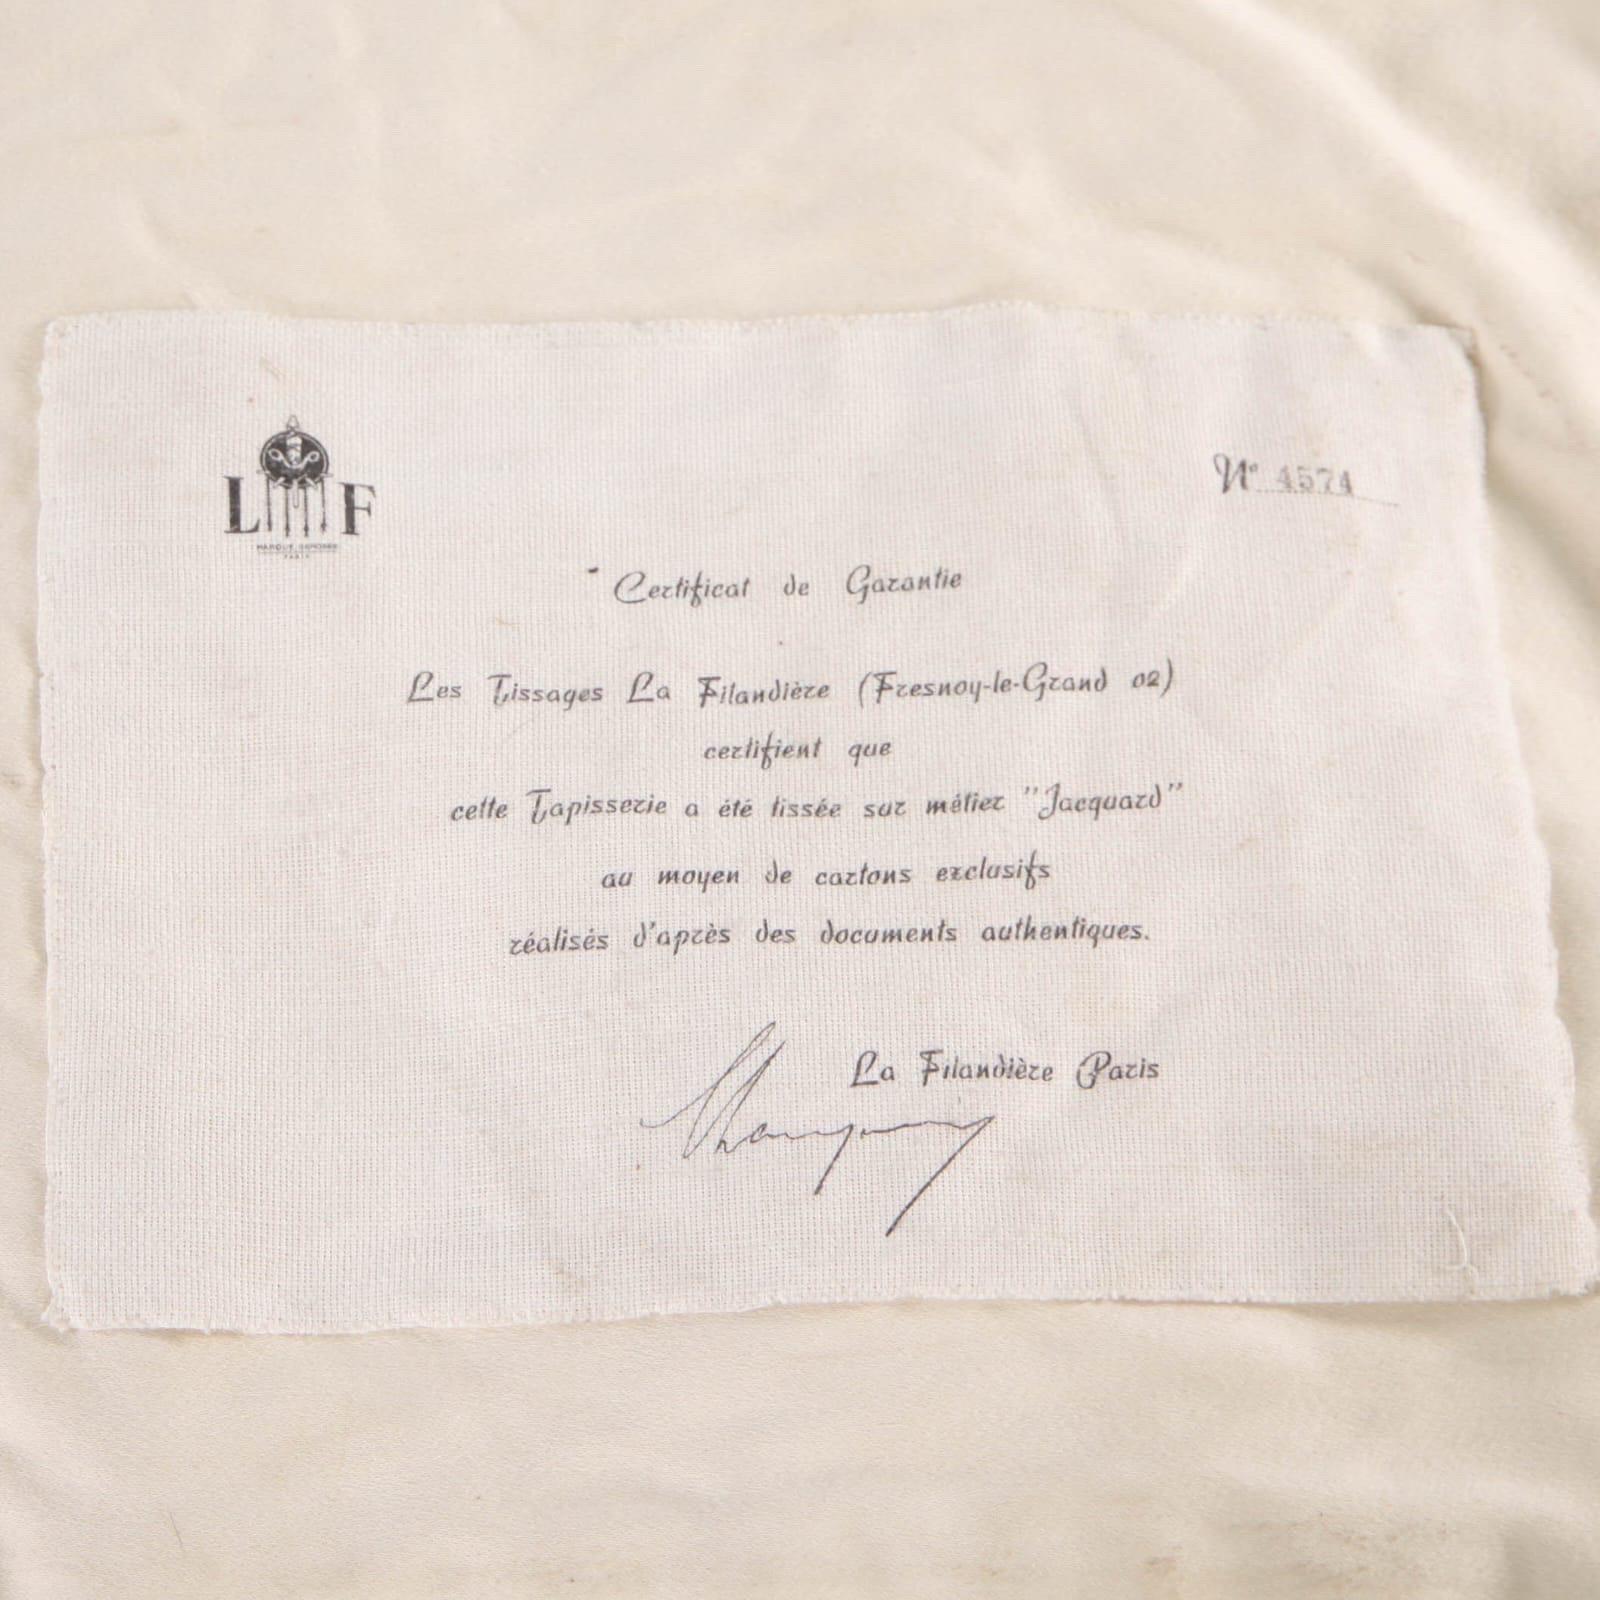 L F
MARQUE DEPOSEE
PARIS
N° 4574
Certificat de Garantie
Les Tissages La Filandière (Fresnoy-le-Grand 02)
certifient que
cette Tapisserie a été tissée sur métier "Jacquard"
au moyen de cartons exclusifs
réalisés d'après des documents authentiques.
La Filandière Paris